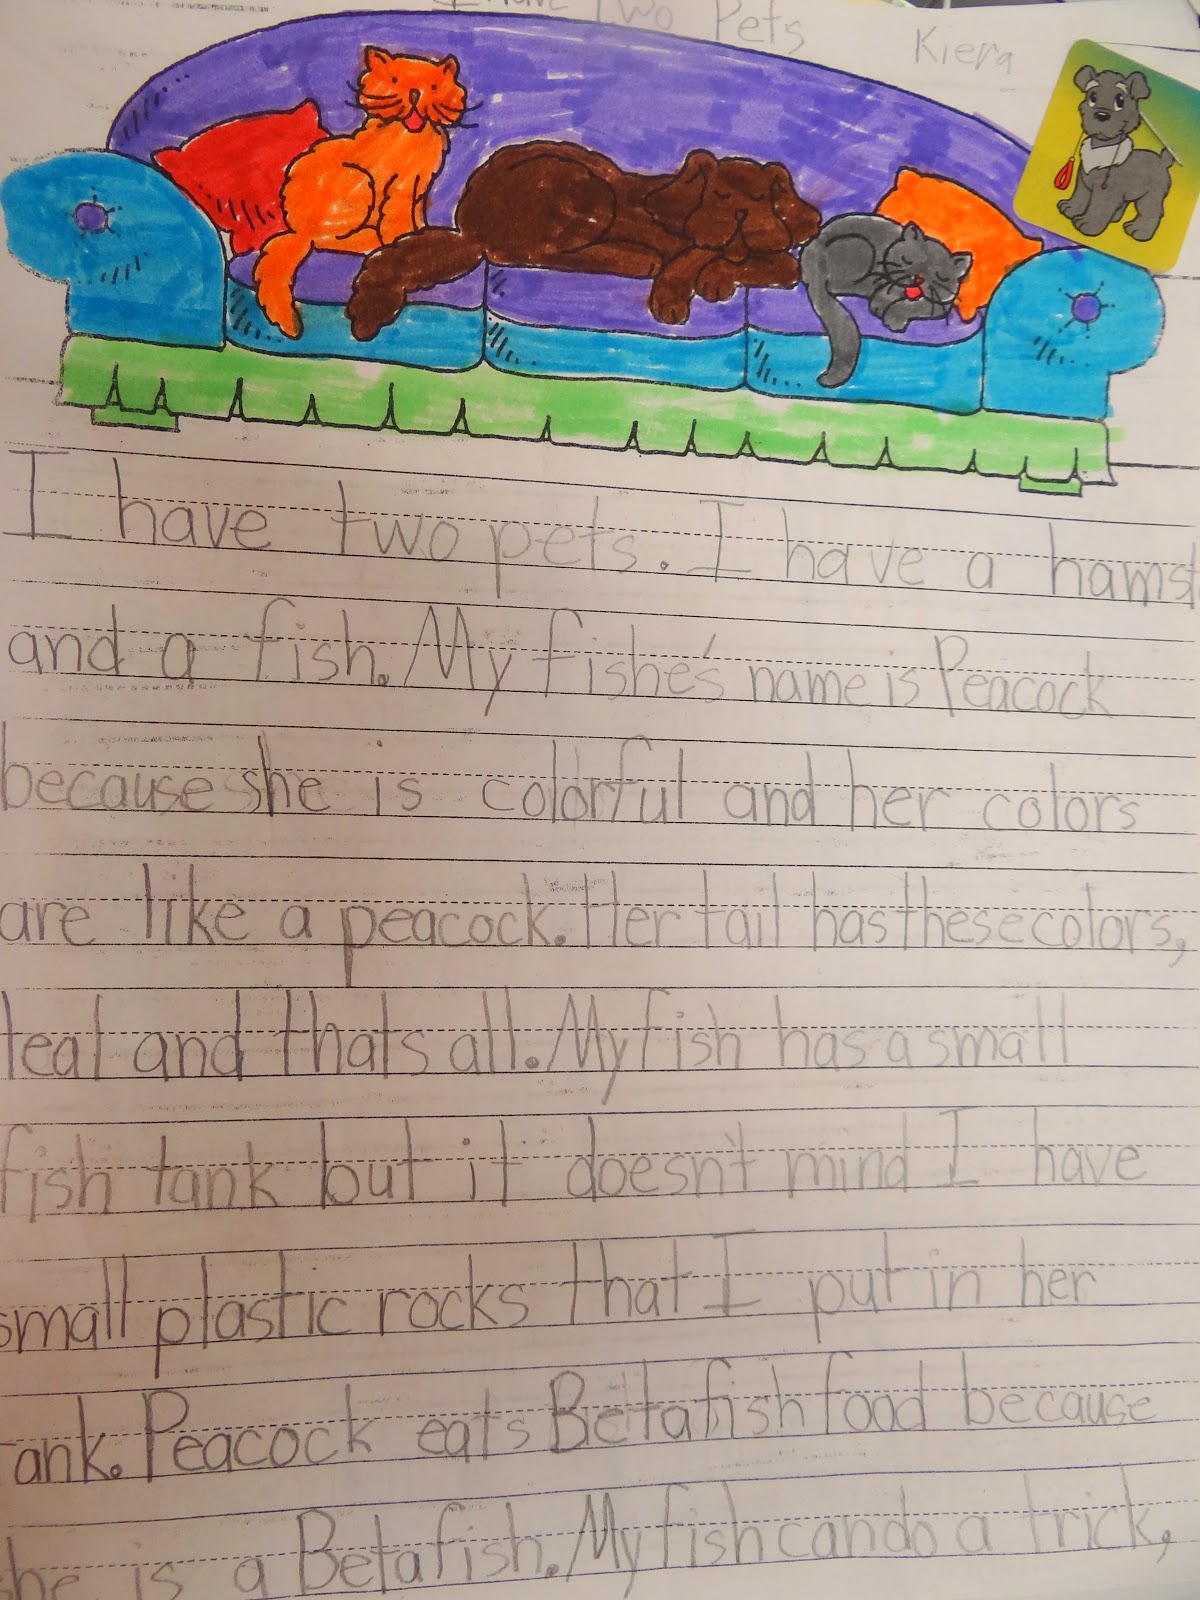 I have Two Pets
Kiera
I have two pets. I have a hamst
and a fish. My fishe's name is Peacock
because she is colorful and her colors
are like a peacock. Her tail has these colors,
teal and thats all. My fish has a small
fish tank but it doesn't mind I have
small plastic rocks that I put in her
tank. Peacock eats Betafish food because
she is a Betafish. My fish can do a trick,